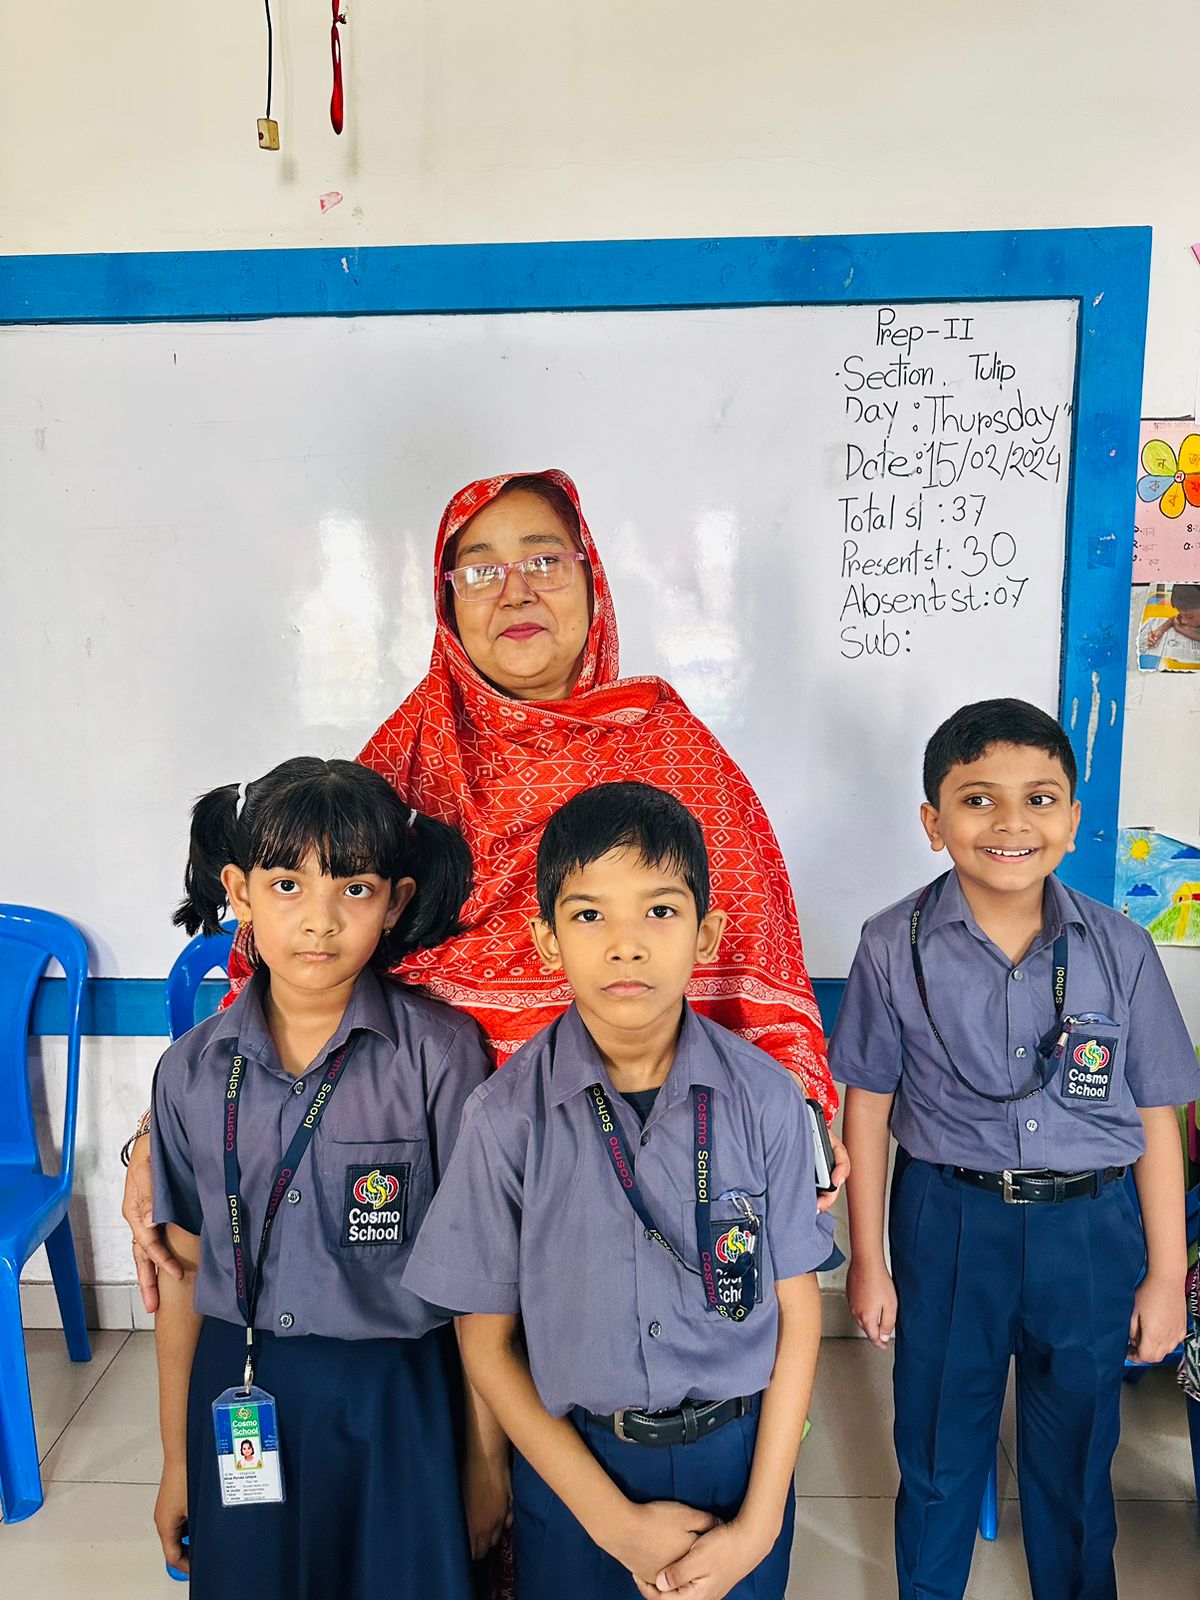 Prep-II
Section. Tulip
Day: Thursday
Date: 15/02/2024
Total st: 37
Present st: 30
Absent st: 07
Sub:
Cosmo School
Cosmo School
Cosmo School
School
School
Cosmo
School
Cosmo
School
Cosmo
School
Cosmo
School